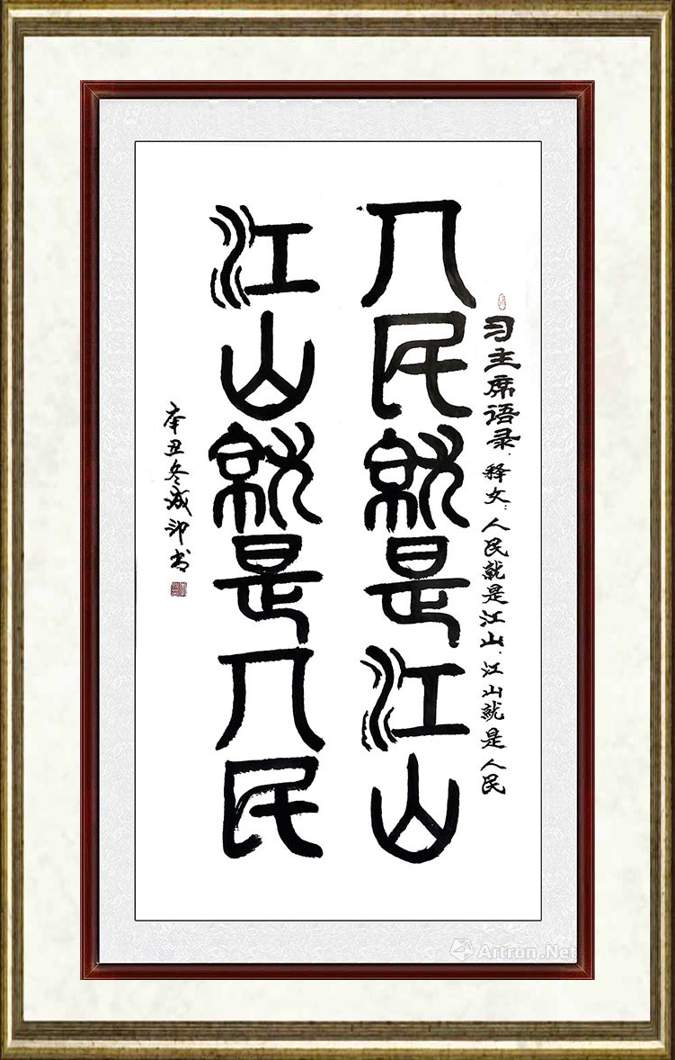 习主席语录:释文:人民就是江山.江山就是人民
人民就是江山
江山就是人民
辛丑冬成印书
Artron.Net